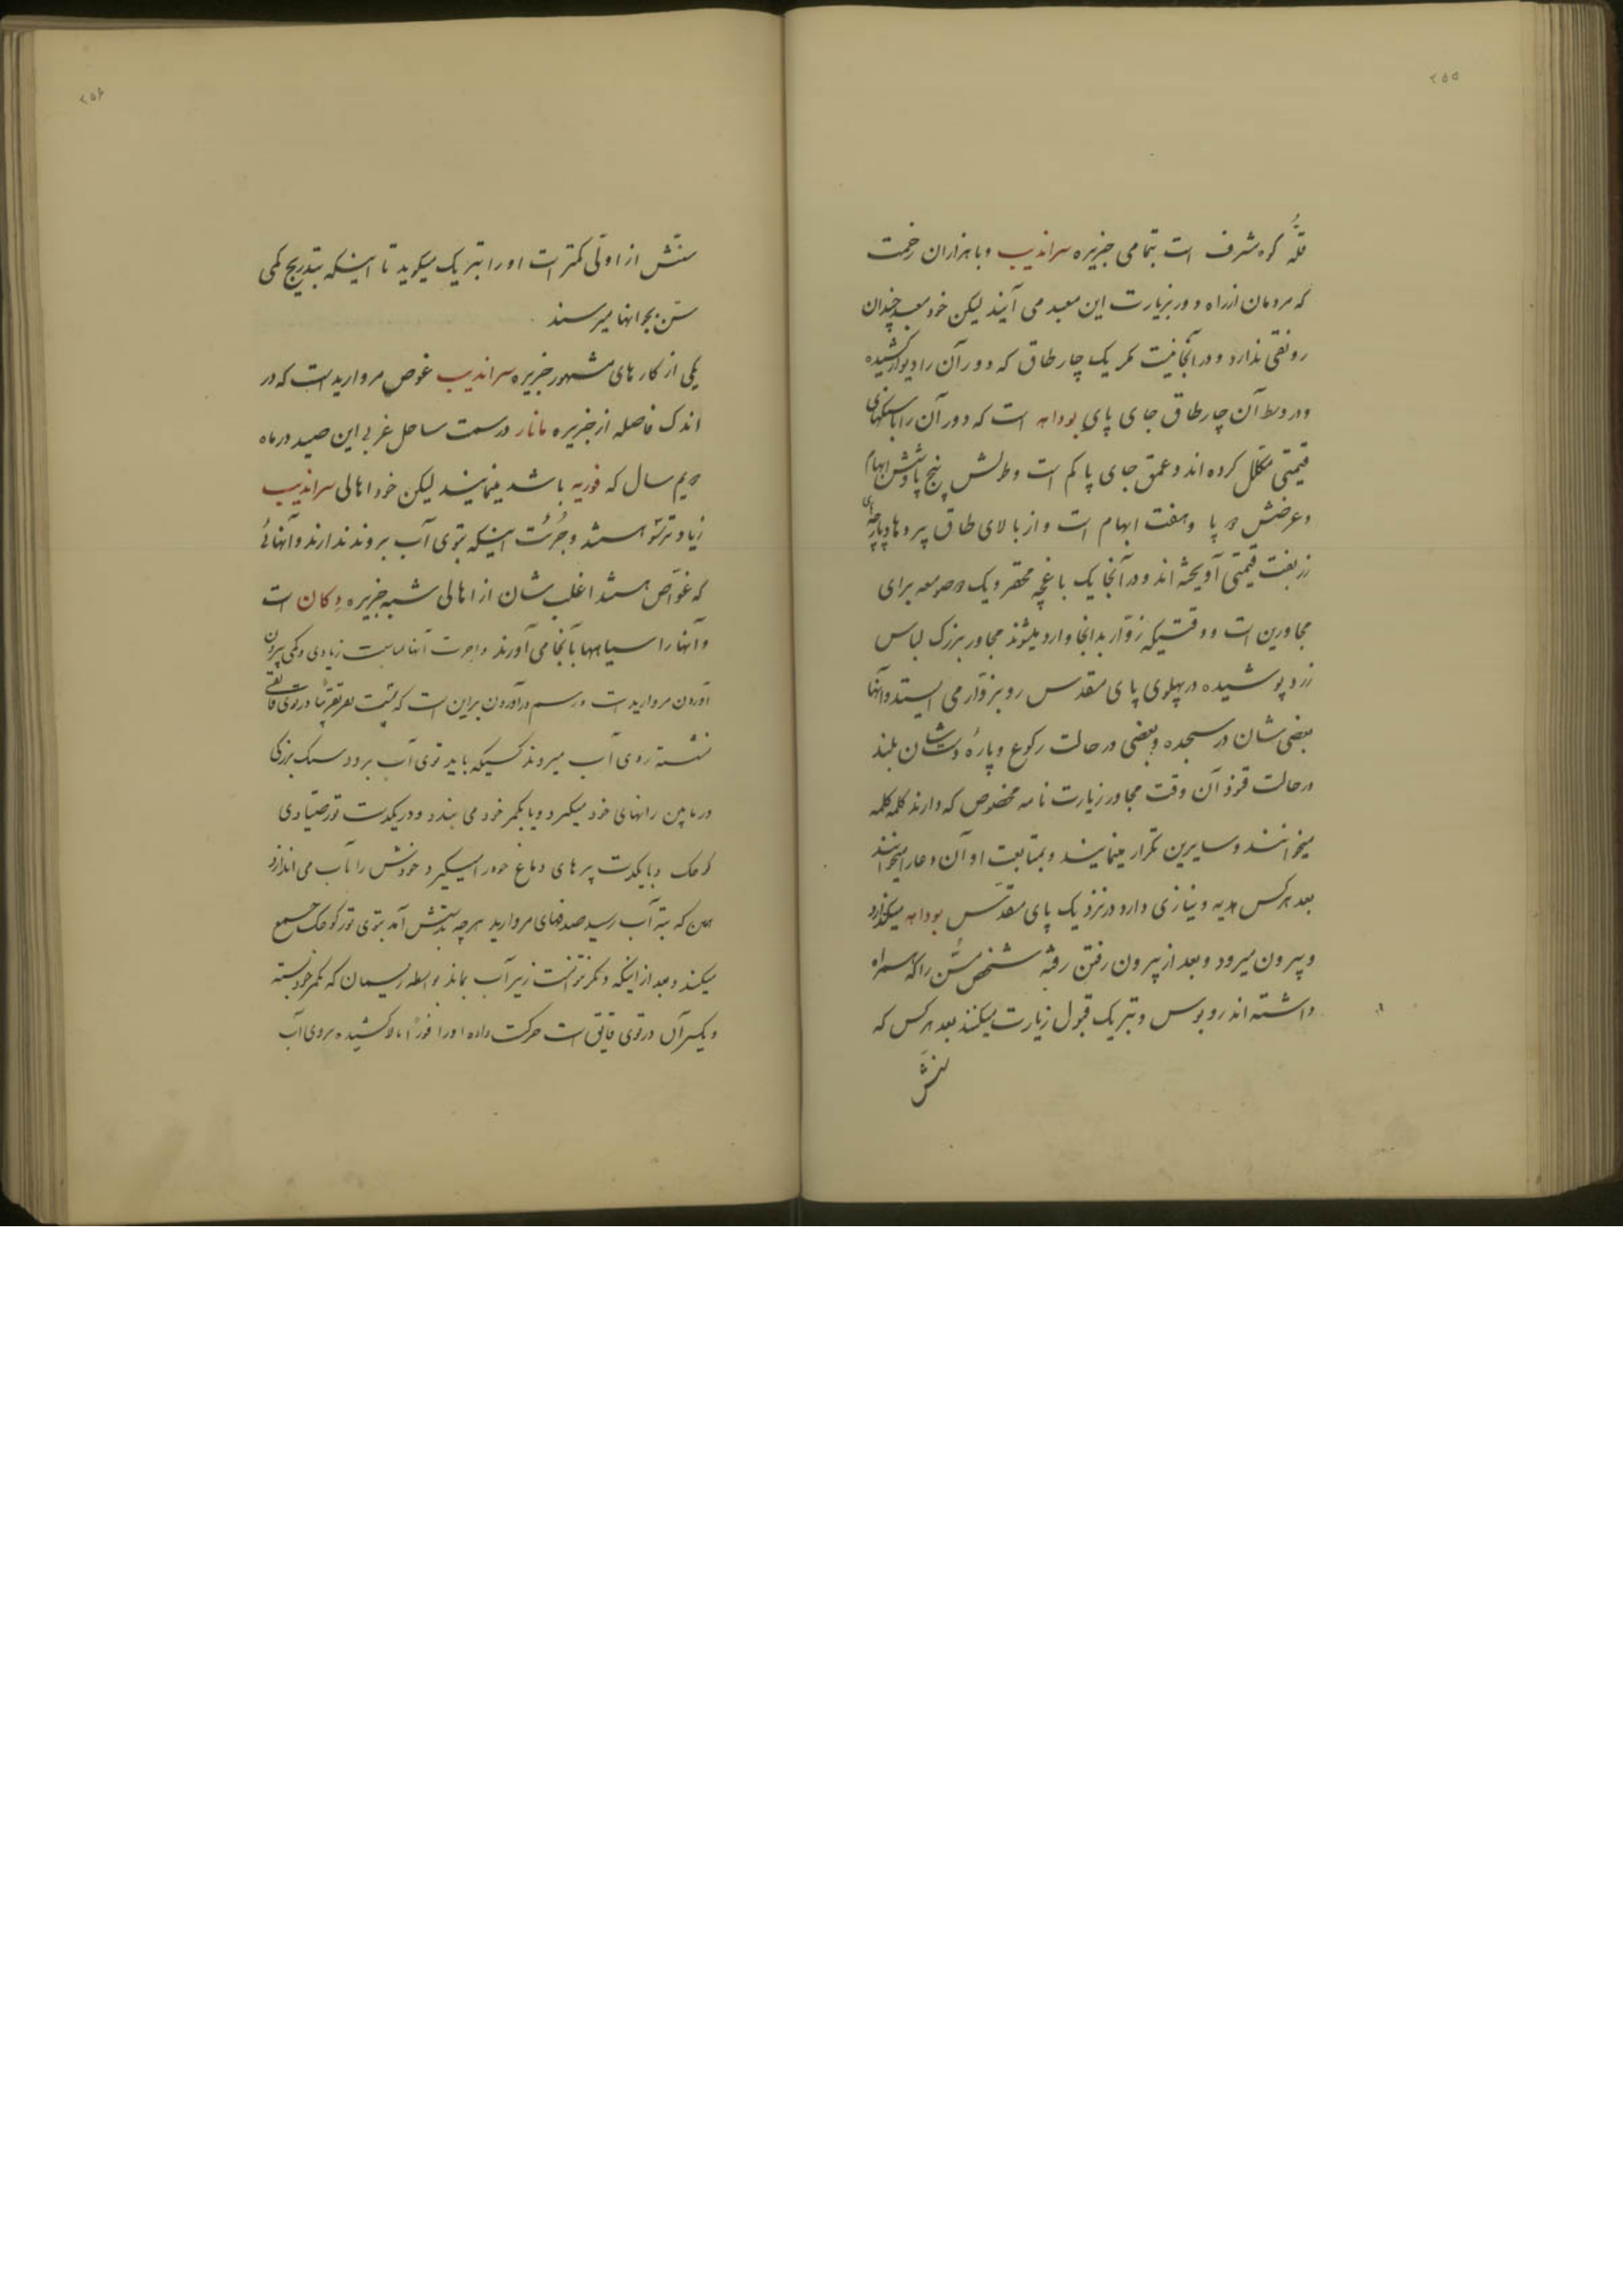 ۲۵۵
قلّهٔ کوه مشرف است بتمامی جزیره سراندیب و با هزاران زحمت
که مردمان از راه دور بزیارت این معبد می آیند لیکن خود معبد چندان
رونقی ندارد و در آنجا نیست مگر یک چار طاق که دور آن را دیوار کشیده
و در وسط آن چار طاق جای پای بوداهه است که دور آن را با سنگهای
قیمتی مکلل کرده اند و عمق جای پا کم است و طولش پنج پا و شش ابهام
و عرضش دو پا و هفت ابهام است و از بالای طاق پرده ها و پارچه های
زربفت قیمتی آویخته اند و در آنجا یک باغچه محقر و یک دو صومعه برای
مجاورین است و وقتیکه زوّار بدانجا وارد میشوند مجاور بزرگ لباس
زرد پوشیده در پهلوی پای مقدس رو بزوّار می ایستد و آنها
بعضی شان در سجده و بعضی در حالت رکوع و پارهٔ دستشان بلند
در حالت قنوذ آن وقت مجاور زیارت نامه مخصوص که دارند کلمه کلمه
میخوانند و سایرین تکرار مینمایند و بمتابعت او آن دعا را میخوانند
بعد هر کس هدیه و نیازی دارد در نزدیک پای مقدّس بوداهه میگذارد
و بیرون میرود و بعد از بیرون رفتن رفته شخص مسّن را که همراه
داشته اند روبوس و تبریک قبول زیارت میکنند بعد هر کس که
سنّش
۲۵۶
سنّش از اوّلی کمتر است او را تبریک میگوید تا اینکه بتدریج کمی
سنّ بجوانها میرسند
یکی از کار های مشهور جزیره سراندیب غوص مروارید است که در
اندک فاصله از جزیره مانار در سمت ساحل غربی این صید در ماه
دویم سال که فوریه باشد مینمایند لیکن خود اهالی سراندیب
زیاد ترسو هستند و جرُئت اینکه بتوی آب بروند ندارند و آنهائی
که غوّاص هستند اغلب شان از اهالی شبه جزیره دکان است
و آنها را سیاهها بآنجا می آورند و اجرت آنها بنسبت زیادی و کمی بیرون
آوردن مروارید است و رسم درآوردن براین است که بیست نفر تقریباً در توی قایقی
نشسته روی آب میروند کسیکه باید توی آب برود سنگ بزرگی
در مابین رانهای خود میگیرد و یا بکمر خود می بندد و در یکدست تور صیّادی
کوچک و با یکدست پره های دماغ خود را میگیرد و خودش را بآب می اندازد
همین که بته آب رسید صدفهای مروارید هرچه بدستش آمد بتوی تور کوچک جمع
میکند و بعد از اینکه دیگر نتوانست زیر آب بماند بواسطه ریسمان که بکمر خود بسته
و یکسر آن در توی قایق است حرکت داده او را فوراً بالا کشیده بروی آب